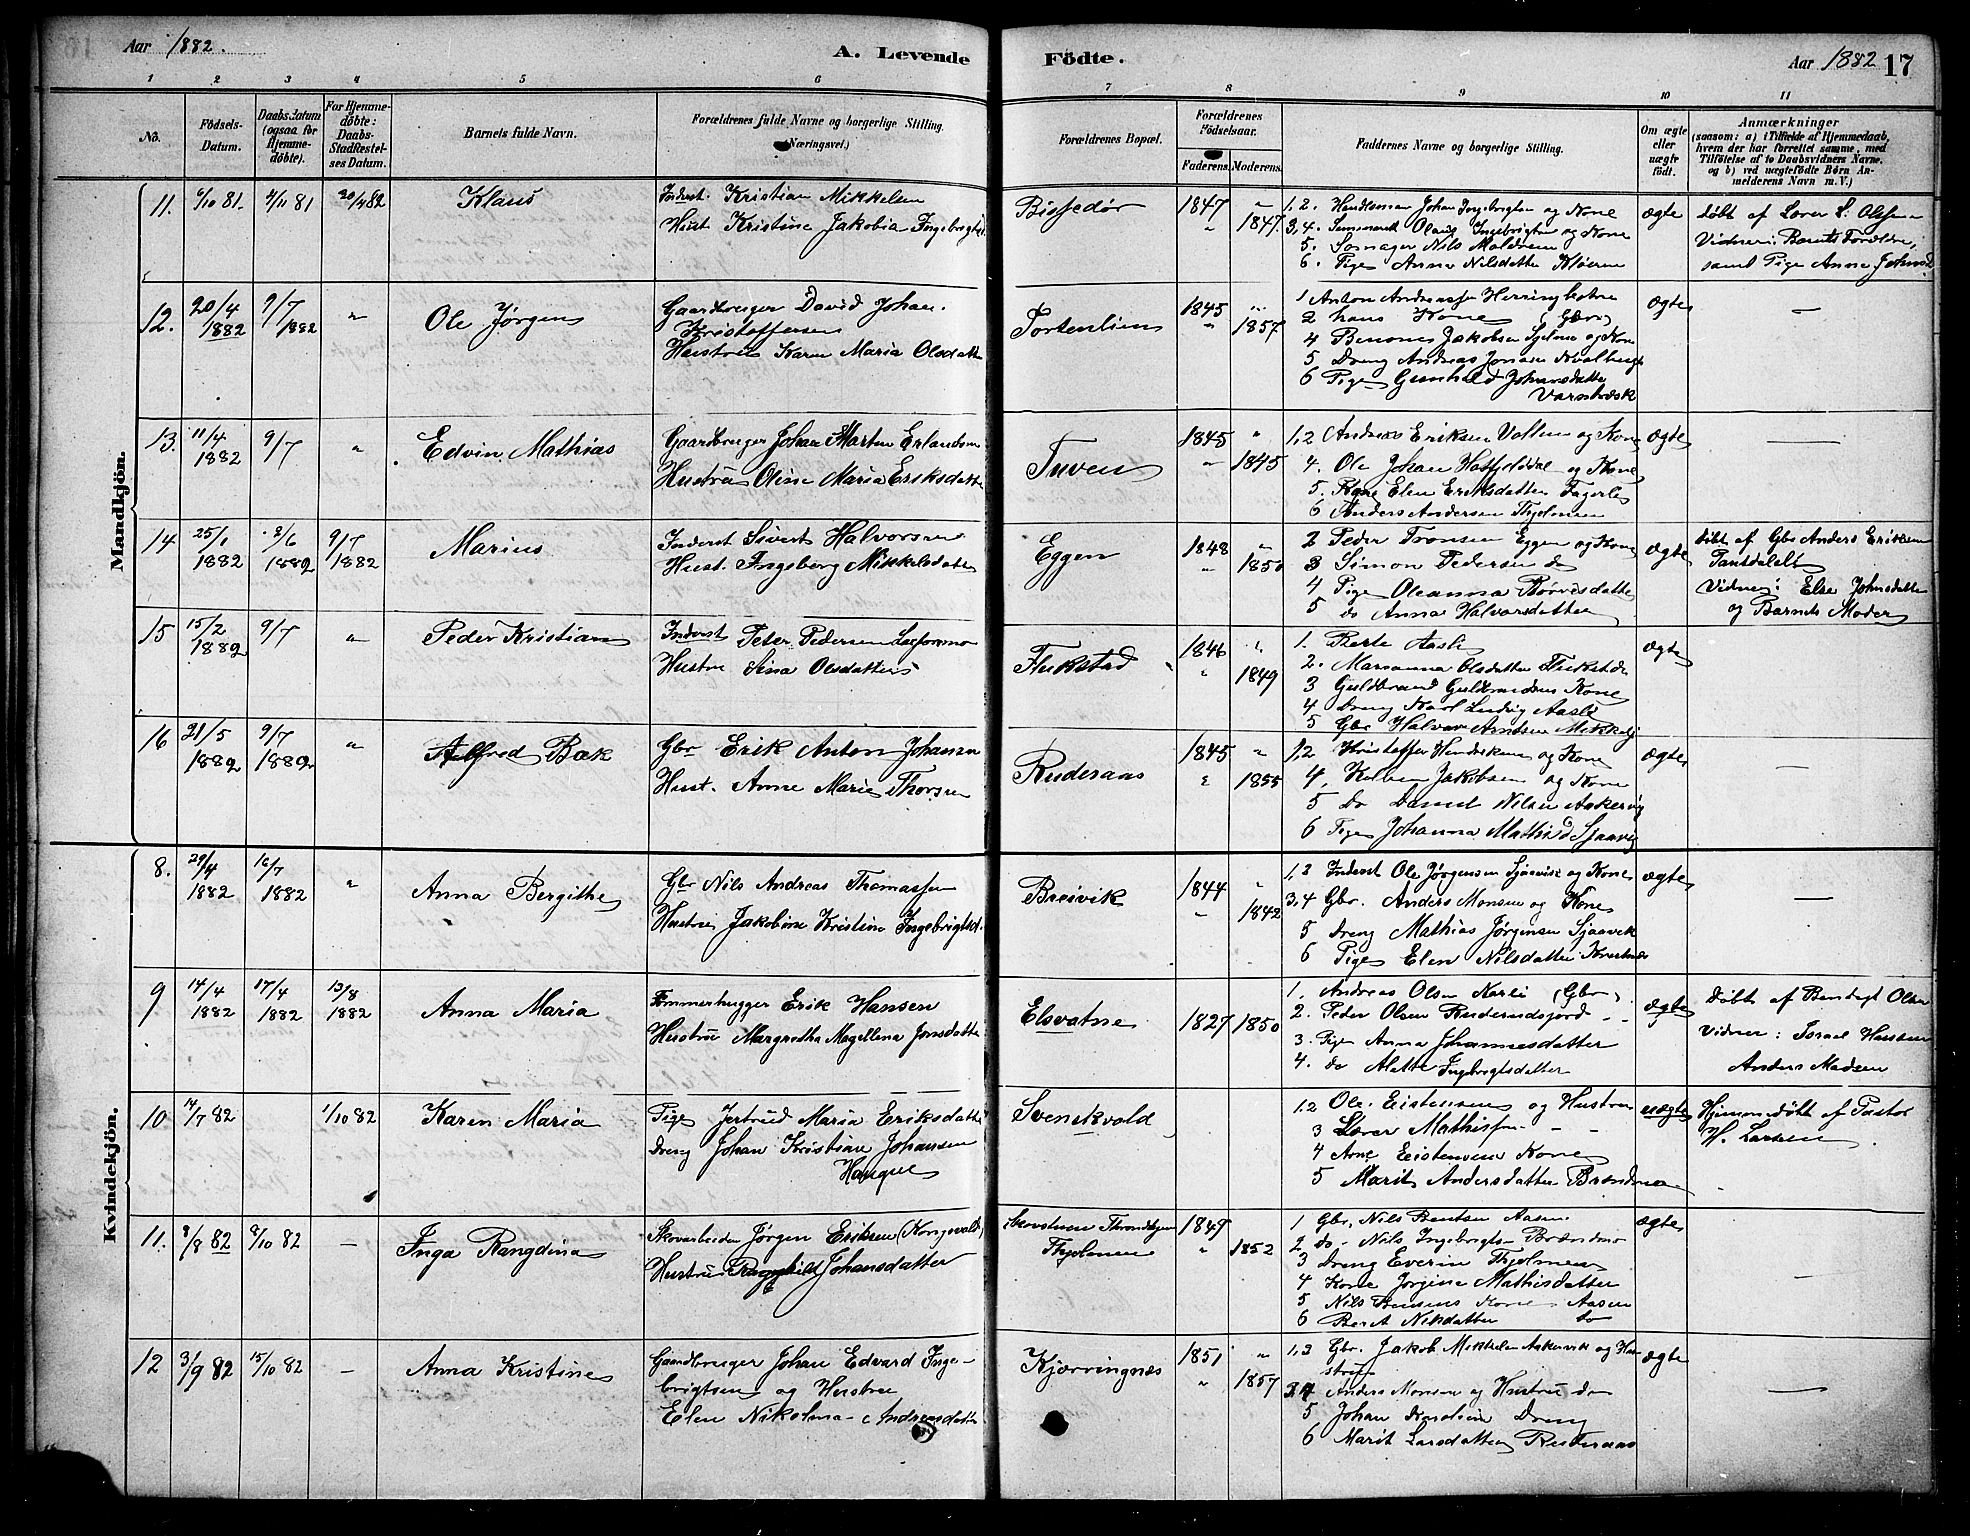 Aar 1882.
A. Levende
Födte.
Aar 1882 17
1 2 3 4 5 6 7 8 9 10 11
No.
Födsels-Datum.
Daabs-Datum (ogsaa for Hjemme-döbte).
For Hjemme-döbte: Daabs-Stadfestel-ses Datum.
Barnets fulde Navn.
Forældrenes fulde Navne og borgerlige Stilling. (Næringsvei.)
Forældrenes Bopæl.
Forældrenes Födselsaar.
Faderens. Moderens.
Faddernes Navne og borgerlige Stilling.
Om ægte eller uægte födt.
Anmærkninger
(saasom: a) i Tilfælde af Hjemmedaab, hvem der har forrettet samme, med Tilföielse af to Daabsvidners Navne, og b) ved uægtefödte Börn An-melderens Navn m. V.)
Mandkjön.
11. 6/10 81. 4/11 81 20/4 82 Klaus
Inderst. Kristian Mikkelsen
Hust Kristine Jakobia Ingebrigtsd
1847 " 1847
3,4. Olaus Ingebrigtsen og Kone
5. Nils
6. Pige Anna Nilsdatter
ægte
döbt af Lærer L. Olsen
Vidner: Barnets Forældre,
samt Pige Anna Johnsd
12. 20/4 1882 9/7 1882 " Ole Jørgen
Gaardbruger David Johan
Kristoffersen
Hustru Karen Maria Olsdatter
Tortenlien
1845 " 1857
1 Anton Andreassen
2 hans Kone (Gbr)
4 Benoni Jakobsen og Kone
5 Dreng Andreas Jonsen
6 Pige Gunhild Johansdatter
ægte —
13. 11/4 1882 9/7 " Edvin Mathias
Gaardbruger Johan Morten Erlandsen
Hustru Oline Maria Eriksdatter
Tuven
1845 " 1845
1,2 Andreas Eriksen Vollen og Kone
4. Ole Johan Hatfjelddal og Kone
5. Kone Elen Eriksdatter Fagerli
6 Anders Andersen
ægte —
14 25/1 1882 2/6 1882 9/7 1882 Marius
Inderst Sivert Halvorsen
Hust Ingeborg Mikkelsdatter
Eggen
1848 " 1850
2 Peder Tronsen Eggen og Kone
3 Simon Pedersen do
4 Pige Oleanna
5 do Anna Halvorsdatter
ægte
döbt af Gbr Anders Eriksen
Vidner: Else Johnsdatter
og Barnets Moder
15 15/2 1882 9/7 " Peder Kristian
Inderst Peter Pedersen Laxfornmo
Hustru Sina Olsdatter
Flukstad
1846 " 1849
1. Berte Aasli
2. Marianna Olsdatter Flukstad
3 Guldbrand Guldbrandsens Kone
4 Dreng Karl Ludvig Aasli
5 Gbr Halvor Arntsen
ægte
16 21/5 1882 9/7 1882 " Alfred Bæk
Gbr Erik Anton Johansen
Hust. Anne Marie Thorsen
Ruderaas
1845 " 1855
1,2 Kristoffer Hendriksen og Kone
4. Jakobsen og Kone
5 Do Daniel Nilsen Aakervig
6 Pige Johanna Mathisd Sjaavig
ægte —
Kvindekjön.
8. 29/4 1882 16/7 1882 " Anna Bergithe
Gbr Nils Andreas Thomassen
Hustru Jakobine Kristine Ingebrigtsd.
Breivik
1844 " 1842
1,2 Inderst Ole Jørgensen Sjaavik og Kone
3,4 Gbr. Anders Monsen og Kone
5 Dreng Mathias Jørgensen Sjaavik
6 Pige Elen Nilsdatter
ægte —
9 14/4 1882 17/4 1882 13/8 1882 Anna Maria
Tømmerhugger Erik Hansen
Hustru Margretha Magellena Jonsdatter
Elsvatne
1827 1850
1. Andreas Olsen (Gbr)
2. Peder Olsen
3. Pige Anna Johannesdatter
4. do Ingebrigtsdatter
ægte
Døbt af Bendigt Olsen
Vidner: Israel Hansen
Anders Madsen
10 14/7 82 1/10 82 Karen Maria
Pige Jertrud Maria Eriksdatter
Dreng Johan Kristian Johansen
Haugen
Svenskvold
1.2 Ole Eistensen og Hustru
3 Lærer Mathisen
4 Arne Eistensens Kone
5 Marit Andersdatter Brændmo
uægte
Hjemmedöbt af Pastor
H. Larsen
11. 3/8 82 8/10 82 — Inga Rangdina
Skovarbeider Jørgen Eriksen (Kongsvold)
Hustru Ragnhild Johansdatter
1849 " 1852
1 Gbr. Nils Bentsen Aasen
2 do Nils Ingebrigts- Brændmo
3 Dreng Everin
4 Kone Jorgine Mathisdatter
5 Nils Bensens Kone Aasen
6 Beret Nilsdatter do
ægte —
12 3/9 82 15/10 82 — Anna Kristine
Gaardbruger Johan Edvard Inge-
brigtsen og Hustru
Elen Nikolina Andreasdatter
Kjærringnæs
1851 " 1857
1,2 Gbr. Jakob Mikkelsen Aakervik og Hu-
stru
3,4 Anders Monsen og Hustru do
5 Johan Dreng
6 Marit Larsdatter Ruderaas
ægte —